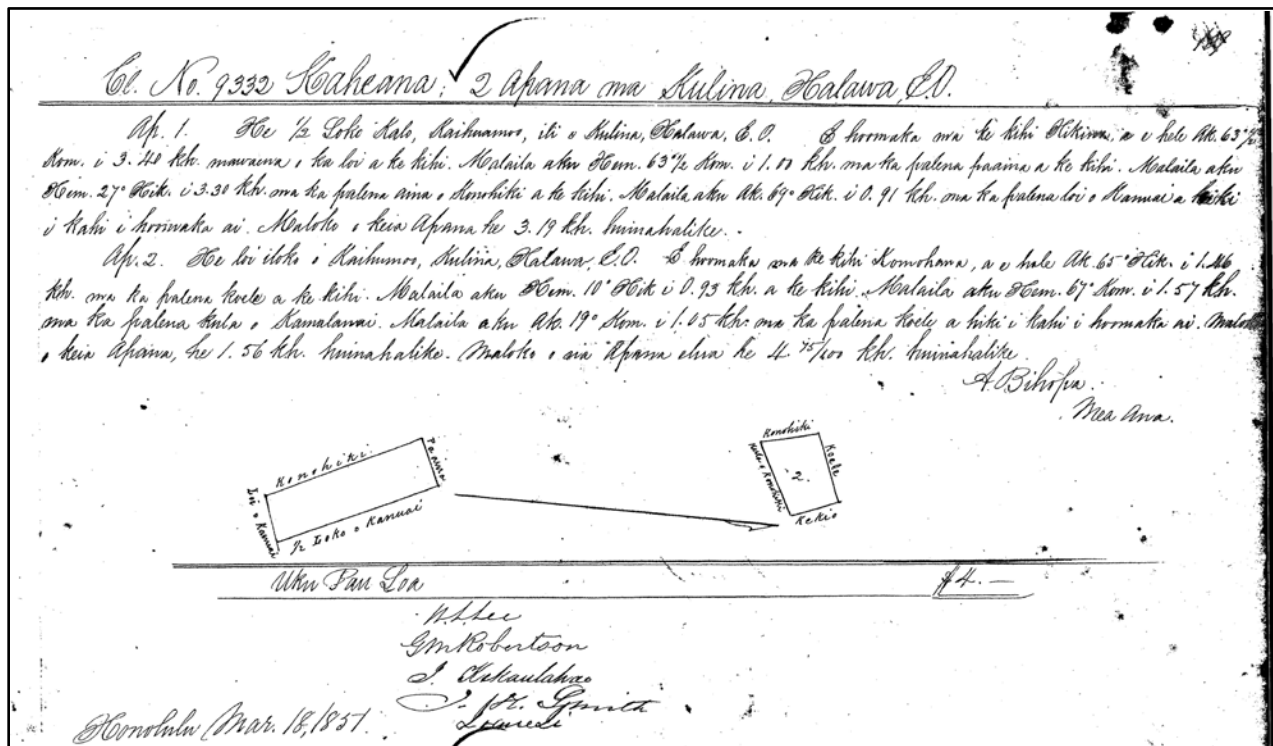 Cl. No. 9332 Kaheana, 2 Apana ma Kulina, Halawa, E.O.
Ap. 1. He 1/2 Loko Kalo, Kaihuamoo, ili o Kulina, Halawa, E.O. E hoomaka ma ke kihi Hikina, a e hele Ak. 63° 1/2
Kom. i 3.40 kh. mawaena o ka loi a ke kihi. Malaila aku Hem. 63° 1/2 Kom. i 1.00 kh. ma ka palena paaina a ke kihi. Malaila aku
Hem. 27° Hik. i 3.30 kh. ma ka palena aina o Konohiki a ke kihi. Malaila aku Ak. 69° Hik. i 0.91 kh. ma ka palena loi o Kanuai a hiki
i kahi i hoomaka ai. Maloko o keia Apana he 3.19 kh. huinahalike.
Ap. 2. He loi iloko o Kaihumoo, Kulina, Halawa, E.O. E hoomaka ma ke kihi Komohana, a e hele Ak. 65° Hik. i 1.46
kh. ma ka palena koele a ke kihi. Malaila aku Hem. 10° Hik i 0.93 kh. a ke kihi. Malaila aku Hem. 67° Kom. i 1.57 kh.
ma ka palena kula o Kamalanai. Malaila aku Ak. 19° Kom. i 1.05 kh. ma ka palena koele a hiki i kahi i hoomaka ai. Maloko
o keia Apana, he 1.56 kh. huinahalike. Maloko o na Apana elua he 4 75/100 kh. huinahalike.
A. Bihopa.
Mea Ana.
Konohiki
Paaina
Loi o Kanuai
1/2 Loko o Kanuai
Konohiki
Koele
Kula o Konohiki
2.
Kekio
Uku Pau Loa $4.—
W. L. Lee
G M Robertson
J. Kekaulahao
J. H. Smith
Honolulu Mar. 18, 1851.